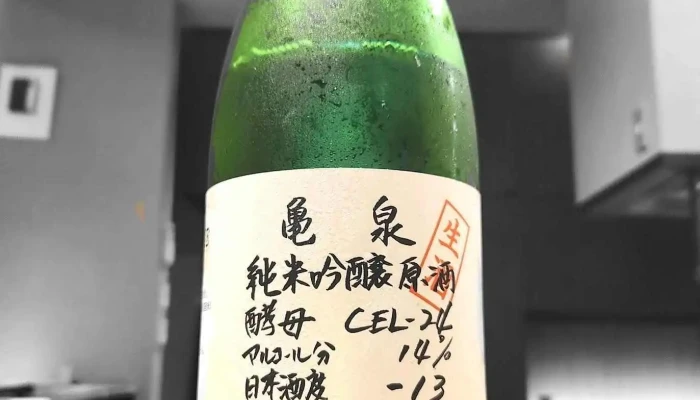 亀泉
生酒
純米吟醸原酒
酵母 CEL-24
アルコール分 14%
日本酒度 -13